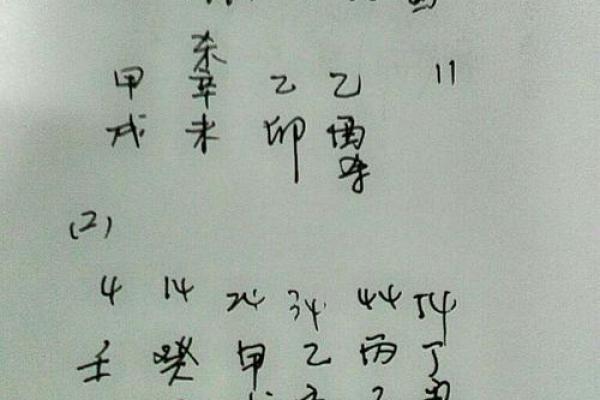 杀
甲 辛 乙 乙 11
戌 未 卯 酉
(2)
4 14 24 34 44 54
壬 癸 甲 乙 丙 丁